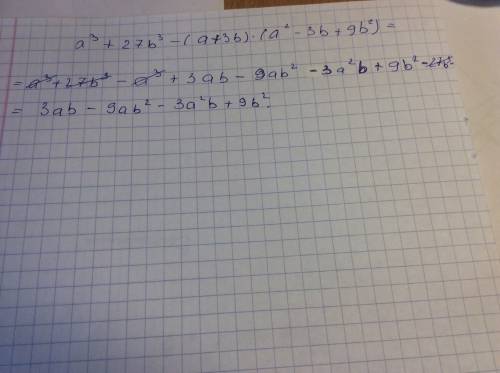 a³ + 27b³ - (a+3b)·(a² - 3b + 9b²) =
= a³ + 27b³ - a³ + 3ab - 9ab² - 3a²b + 9b² - 27b³
= 3ab - 9ab² - 3a²b + 9b².